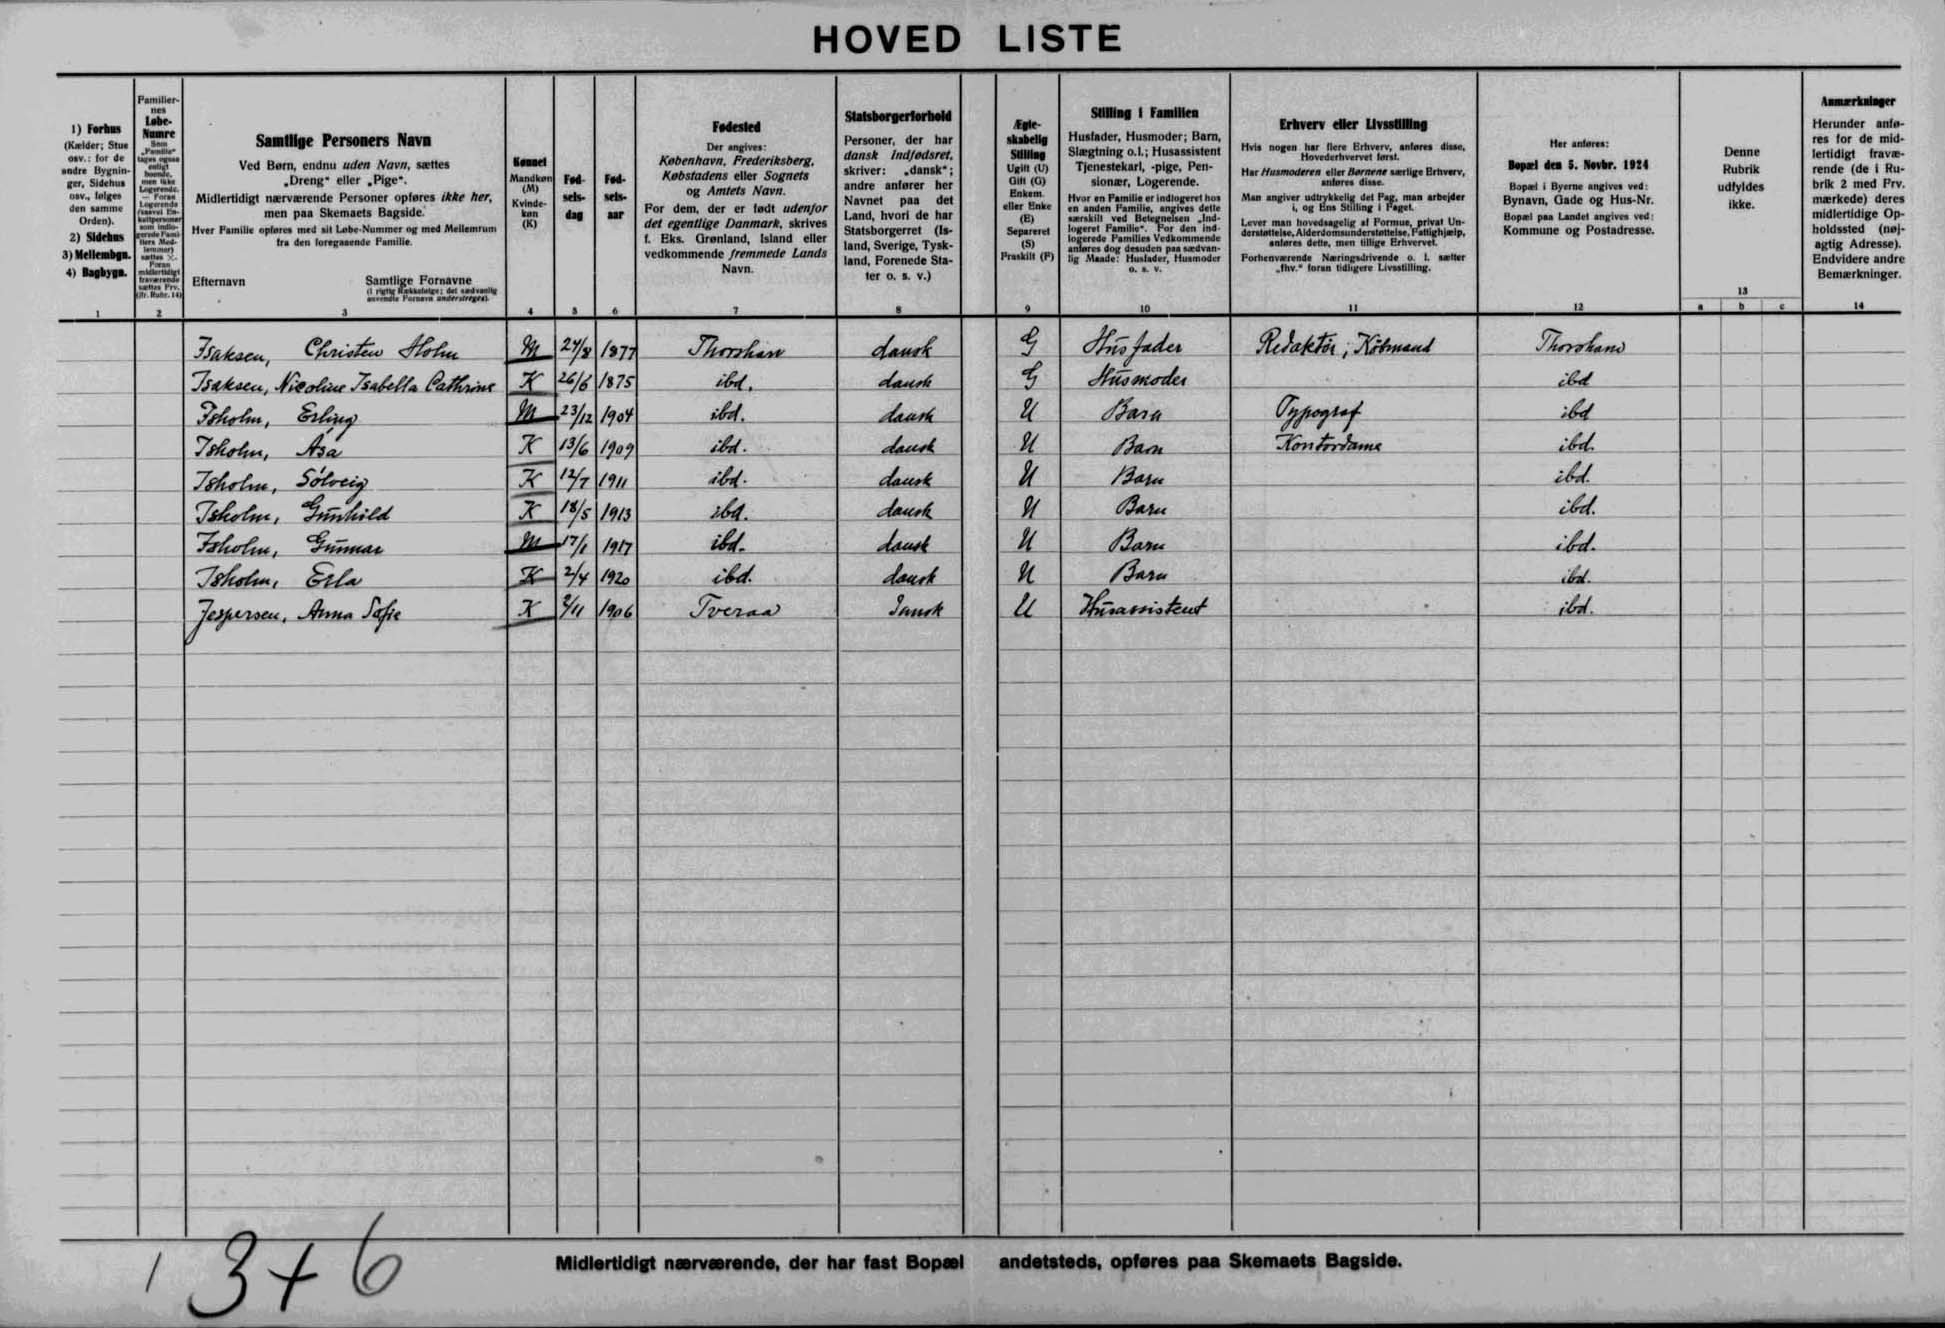 HOVED LISTE
1) Forhus
(Kælder; Stue
osv.: for de
andre Bygnin-
ger, Sidehus
osv., følges
den samme
Orden).
2) Sidehus
3) Mellembgn.
4) Bagbygn.
1
Familier-
nes
Løbe-
Numre
Som
„Familie“
tages ogsaa
enligt
boende,
men ikke
Logerende.
— Foran
Logerende
(saavel En-
keltpersoner
som indlo-
gerede Fami-
liers Med-
lemmer)
sættes ⁒.
Foran
midlertidigt
fraværende
sættes Frv.
(jfr. Rubr. 14)
2
Samtlige Personers Navn
Ved Børn, endnu uden Navn, sættes
„Dreng“ eller „Pige“.
Midlertidigt nærværende Personer opføres ikke her,
men paa Skemaets Bagside.
Hver Familie opføres med sit Løbe-Nummer og med Mellemrum
fra den foregaaende Familie.
Efternavn Samtlige Fornavne
(i rigtig Rækkefølge; det sædvanlig
anvendte Fornavn understreges).
3
Kønnet
Mandkøn
(M)
Kvinde-
køn
(K)
4
Fød-
sels-
dag
5
Fød-
sels-
aar
6
Fødested
Der angives:
København, Frederiksberg,
Købstadens eller Sognets
og Amtets Navn.
For dem, der er født udenfor
det egentlige Danmark, skrives
f. Eks. Grønland, Island eller
vedkommende fremmede Lands
Navn.
7
Statsborgerforhold
Personer, der har
dansk Indfødsret,
skriver: „dansk“;
andre anfører her
Navnet paa det
Land, hvori de har
Statsborgerret (Is-
land, Sverige, Tysk-
land, Forenede Sta-
ter o. s. v.)
8
Ægte-
skabelig
Stilling
Ugift (U)
Gift (G)
Enkem.
eller Enke
(E)
Separeret
(S)
Fraskilt (F)
9
Stilling i Familien
Husfader, Husmoder; Barn,
Slægtning o.l.; Husassistent
Tjenestekarl, -pige, Pen-
sionær, Logerende.
Hvor en Familie er indlogeret hos
en anden Familie, angives dette
særskilt ved Betegnelsen „Ind-
logeret Familie“. For den ind-
logerede Families Vedkommende
anføres dog desuden paa sædvan-
lig Maade: Husfader, Husmoder
o. s. v.
10
Erhverv eller Livsstilling
Hvis nogen har flere Erhverv, anføres disse,
Hovederhvervet først.
Har Husmoderen eller Børnene særlige Erhverv,
anføres disse.
Man angiver udtrykkelig det Fag, man arbejder
i, og Ens Stilling i Faget.
Lever man hovedsagelig af Formue, privat Un-
derstøttelse, Alderdomsunderstøttelse, Fattighjælp,
anføres dette, men tillige Erhvervet.
Forhenværende Næringsdrivende o. l. sætter
„fhv.“ foran tidligere Livsstilling.
11
Her anføres:
Bopæl den 5. Novbr. 1924
Bopæl i Byerne angives ved:
Bynavn, Gade og Hus-Nr.
Bopæl paa Landet angives ved:
Kommune og Postadresse.
12
Denne
Rubrik
udfyldes
ikke.
13
a b c
Anmærkninger
Herunder anfø-
res for de mid-
lertidigt fravæ-
rende (de i Ru-
brik 2 med Frv.
mærkede) deres
midlertidige Op-
holdssted (nøj-
agtig Adresse).
Endvidere andre
Bemærkninger.
14
Isaksen, Christen Holm M 24/8 1877 Thorshavn dansk G Husfader Redaktør, Købmand Thorshavn
Isaksen, Nicoline Isabella Cathrine K 26/6 1875 ibd. dansk G Husmoder ibd
Isholm, Erling M 23/12 1904 ibd. dansk U Barn Typograf ibd
Isholm, Åsa K 13/6 1909 ibd. dansk U Barn Kontordame ibd.
Isholm, Sólveig K 12/7 1911 ibd. dansk U Barn ibd.
Isholm, Gunhild K 18/5 1913 ibd. dansk U Barn ibd.
Isholm, Gunnar M 17/1 1917 ibd. dansk U Barn ibd.
Isholm, Erla K 2/4 1920 ibd. dansk U Barn ibd.
Jespersen, Anna Sofie K 2/11 1906 Tveraa Dansk U Husassistent ibd.
1 3+6
Midlertidigt nærværende, der har fast Bopæl andetsteds, opføres paa Skemaets Bagside.